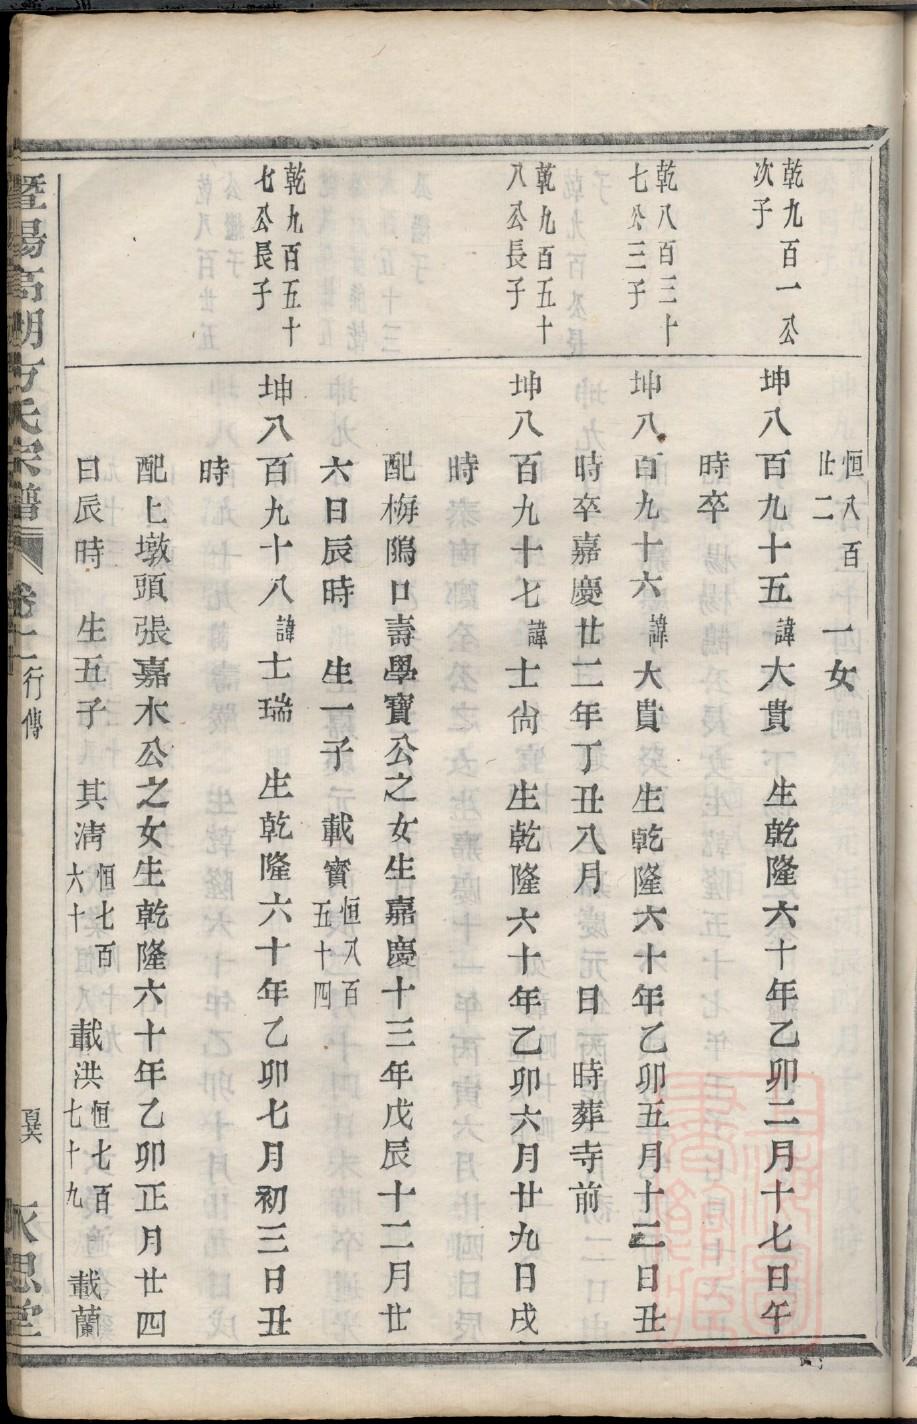 恒八百廿二　一女
乾九百一公次子
坤八百九十五諱大貴　生乾隆六十年乙卯二月十七日午
時卒
乾八百三十七公三子
坤八百九十六諱大貴　生乾隆六十年乙卯五月十三日丑
時卒嘉慶廿二年丁丑八月　日　時葬寺前
乾九百五十八公長子
坤八百九十七諱士尚　生乾隆六十年乙卯六月廿九日戌
時
配梅隝口壽學寶公之女生嘉慶十三年戊辰十二月廿
六日辰時　生一子　載寶恒八百五十四
乾九百五十七公長子
坤八百九十八諱士瑞　生乾隆六十年乙卯七月初三日丑
時
配上墩頭張嘉木公之女生乾隆六十年乙卯正月廿四
日辰時　生五子　其淸恒七百六十　載洪恒七百七十九　載蘭
暨陽高湖方氏宗譜　卷十　行傳　永思堂